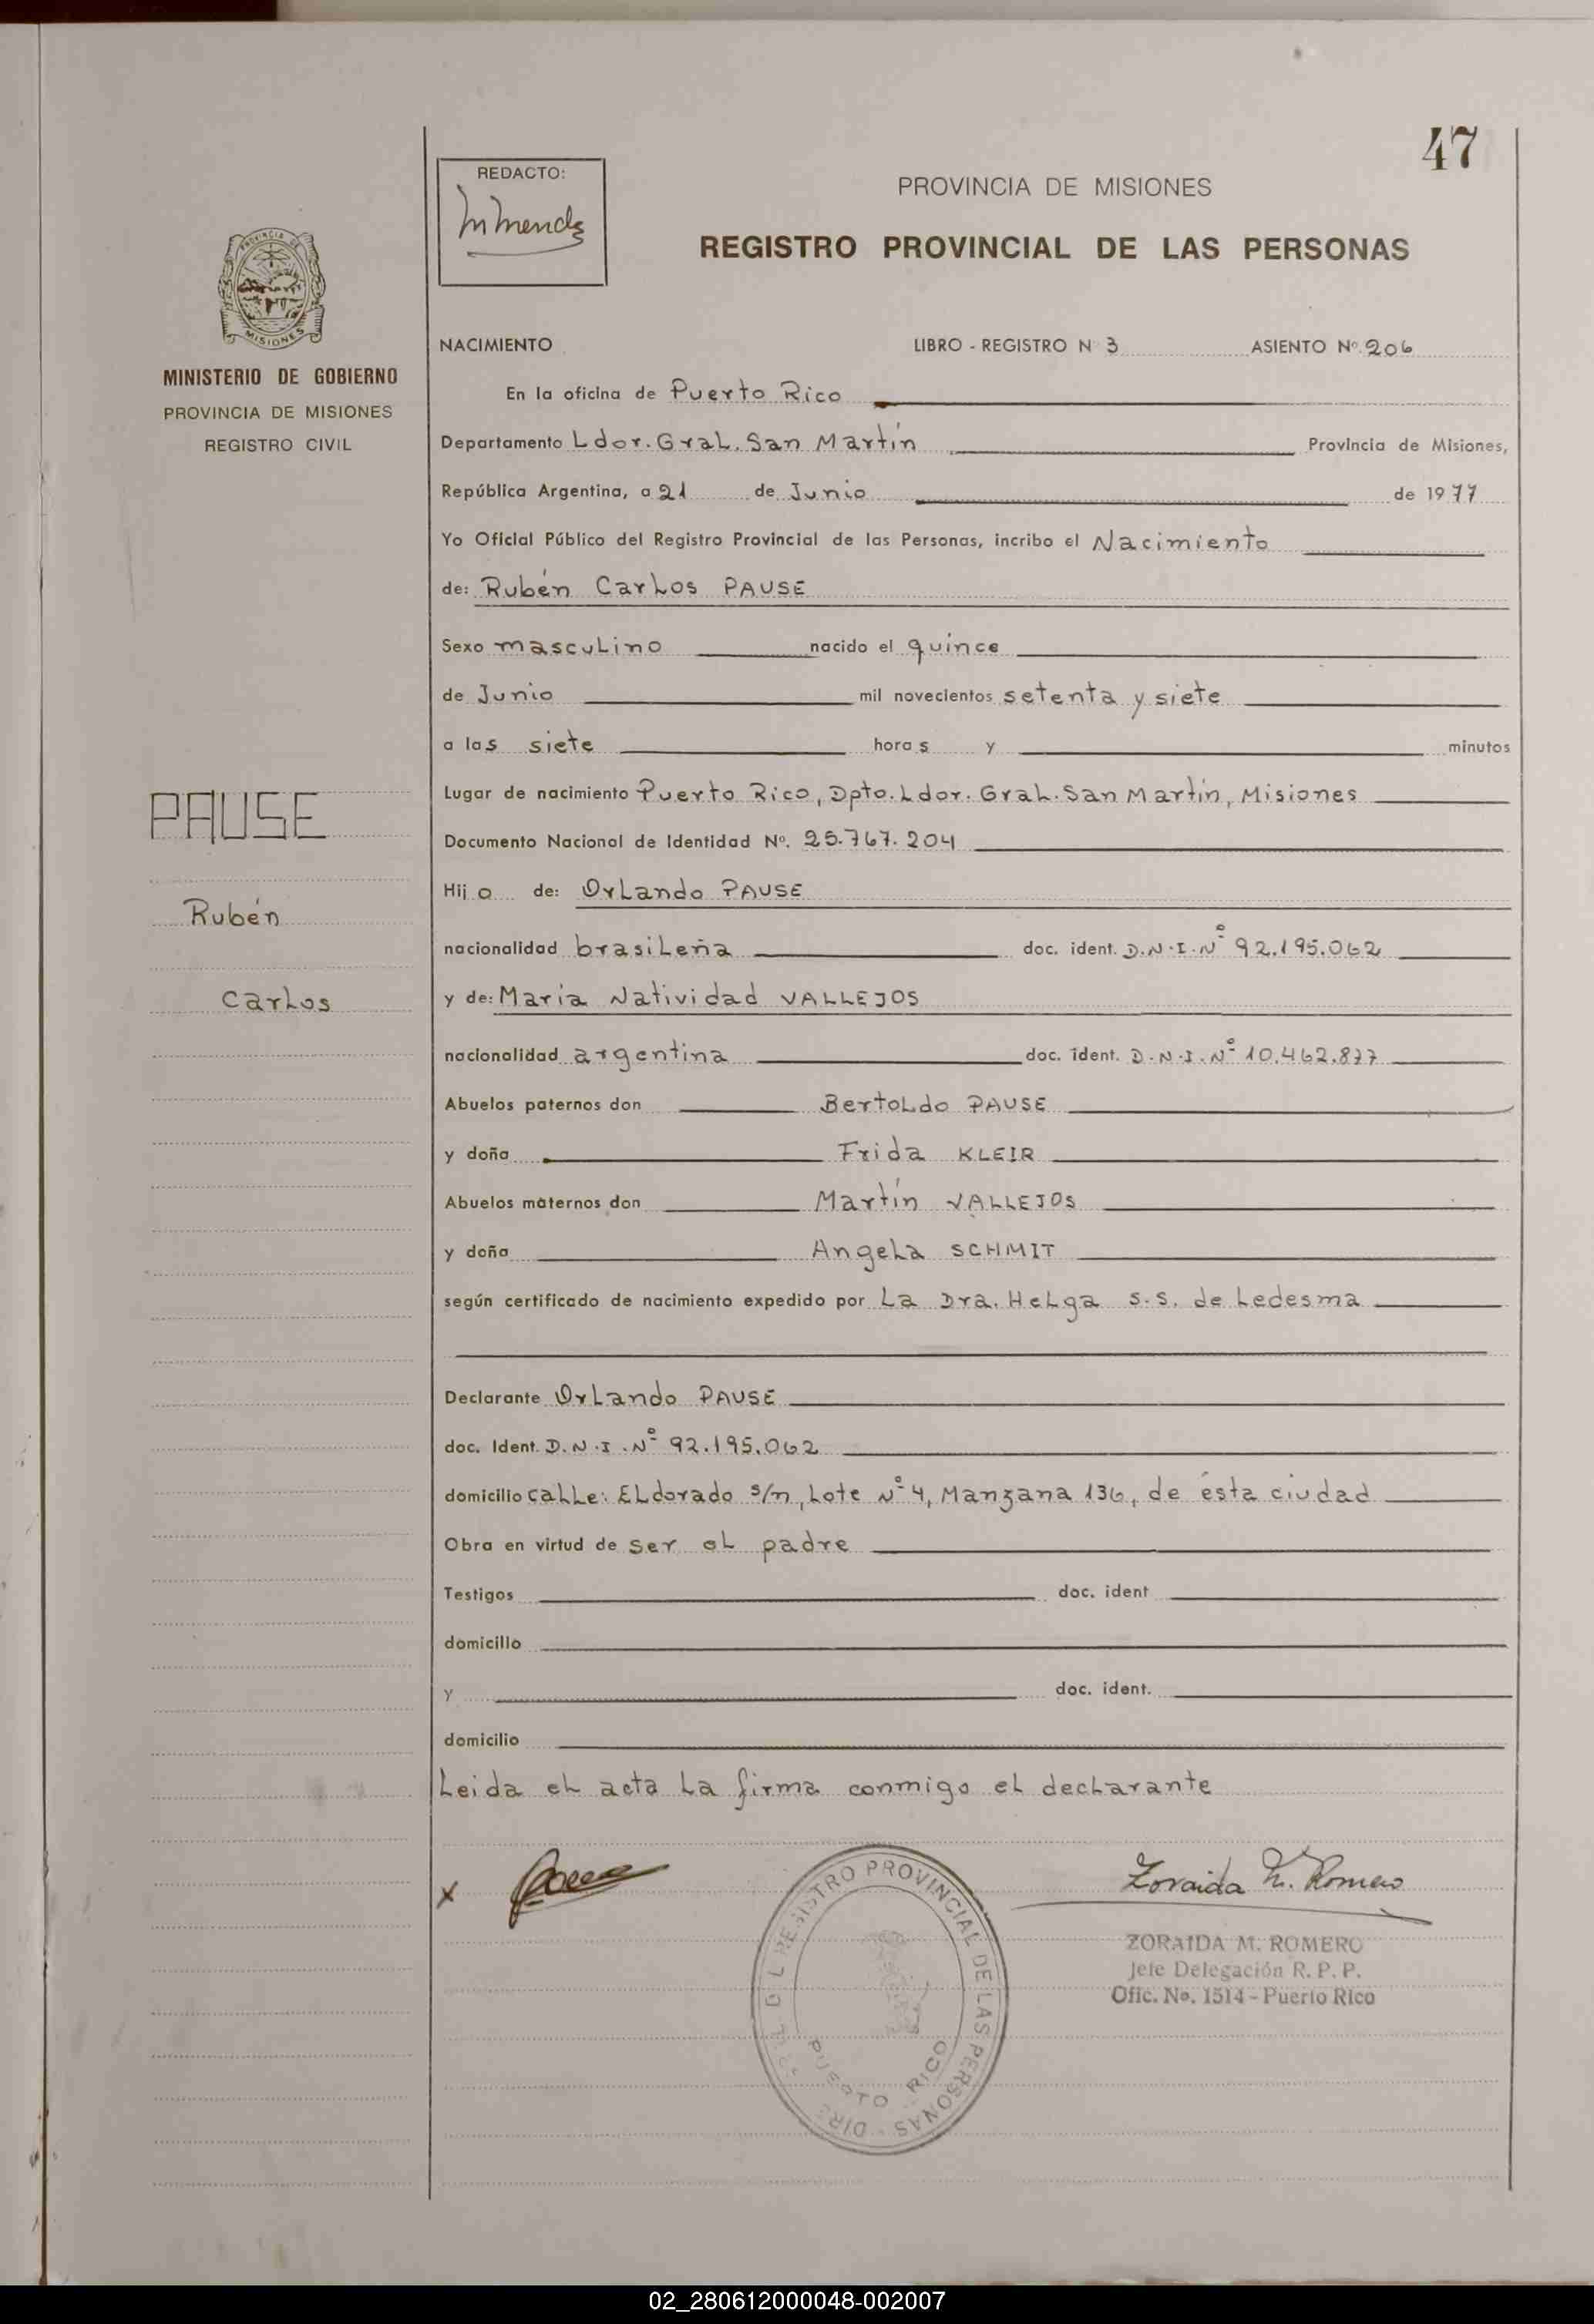 47
REDACTO:
PROVINCIA DE MISIONES
REGISTRO PROVINCIAL DE LAS PERSONAS
PROVINCIA DE
MISIONES
MINISTERIO DE GOBIERNO
PROVINCIA DE MISIONES
REGISTRO CIVIL
PAUSE
Rubén
Carlos
NACIMIENTO LIBRO - REGISTRO N 3 ASIENTO Nº 206
En la oficina de Puerto Rico
Departamento Ldor. Gral. San Martín Provincia de Misiones,
República Argentina, a 21 de Junio de 1977
Yo Oficial Público del Registro Provincial de las Personas, incribo el Nacimiento
de: Rubén Carlos PAUSE
Sexo masculino nacido el quince
de Junio mil novecientos setenta y siete
a las siete horas y minutos
Lugar de nacimiento Puerto Rico, Dpto. Ldor. Gral. San Martín, Misiones
Documento Nacional de Identidad Nº. 25.767.204
Hijo de: Orlando PAUSE
nacionalidad brasileña doc. ident. D.N.I.Nº 92.195.062
y de: María Natividad VALLEJOS
nacionalidad argentina doc. ident. D.N.I.Nº 10.462.877
Abuelos paternos don Bertoldo PAUSE
y doña Frida KLEIR
Abuelos maternos don Martín VALLEJOS
y doña Angela SCHMIT
según certificado de nacimiento expedido por La Dra. Helga S.S. de Ledesma
Declarante Orlando PAUSE
doc. Ident. D.N.I.Nº 92.195.062
domicilio calle: Eldorado s/n, Lote Nº 4, Manzana 136, de ésta ciudad
Obra en virtud de ser el padre
Testigos doc. ident
domicilio
y doc. ident.
domicilio
Leida el acta la firma conmigo el declarante
x
Zoraida M. Romero
ZORAIDA M. ROMERO
Jefe Delegación R. P. P.
Ofic. No. 1514 - Puerto Rico
DEL REGISTRO PROVINCIAL DE LAS PERSONAS
PUERTO RICO
02_280612000048-002007